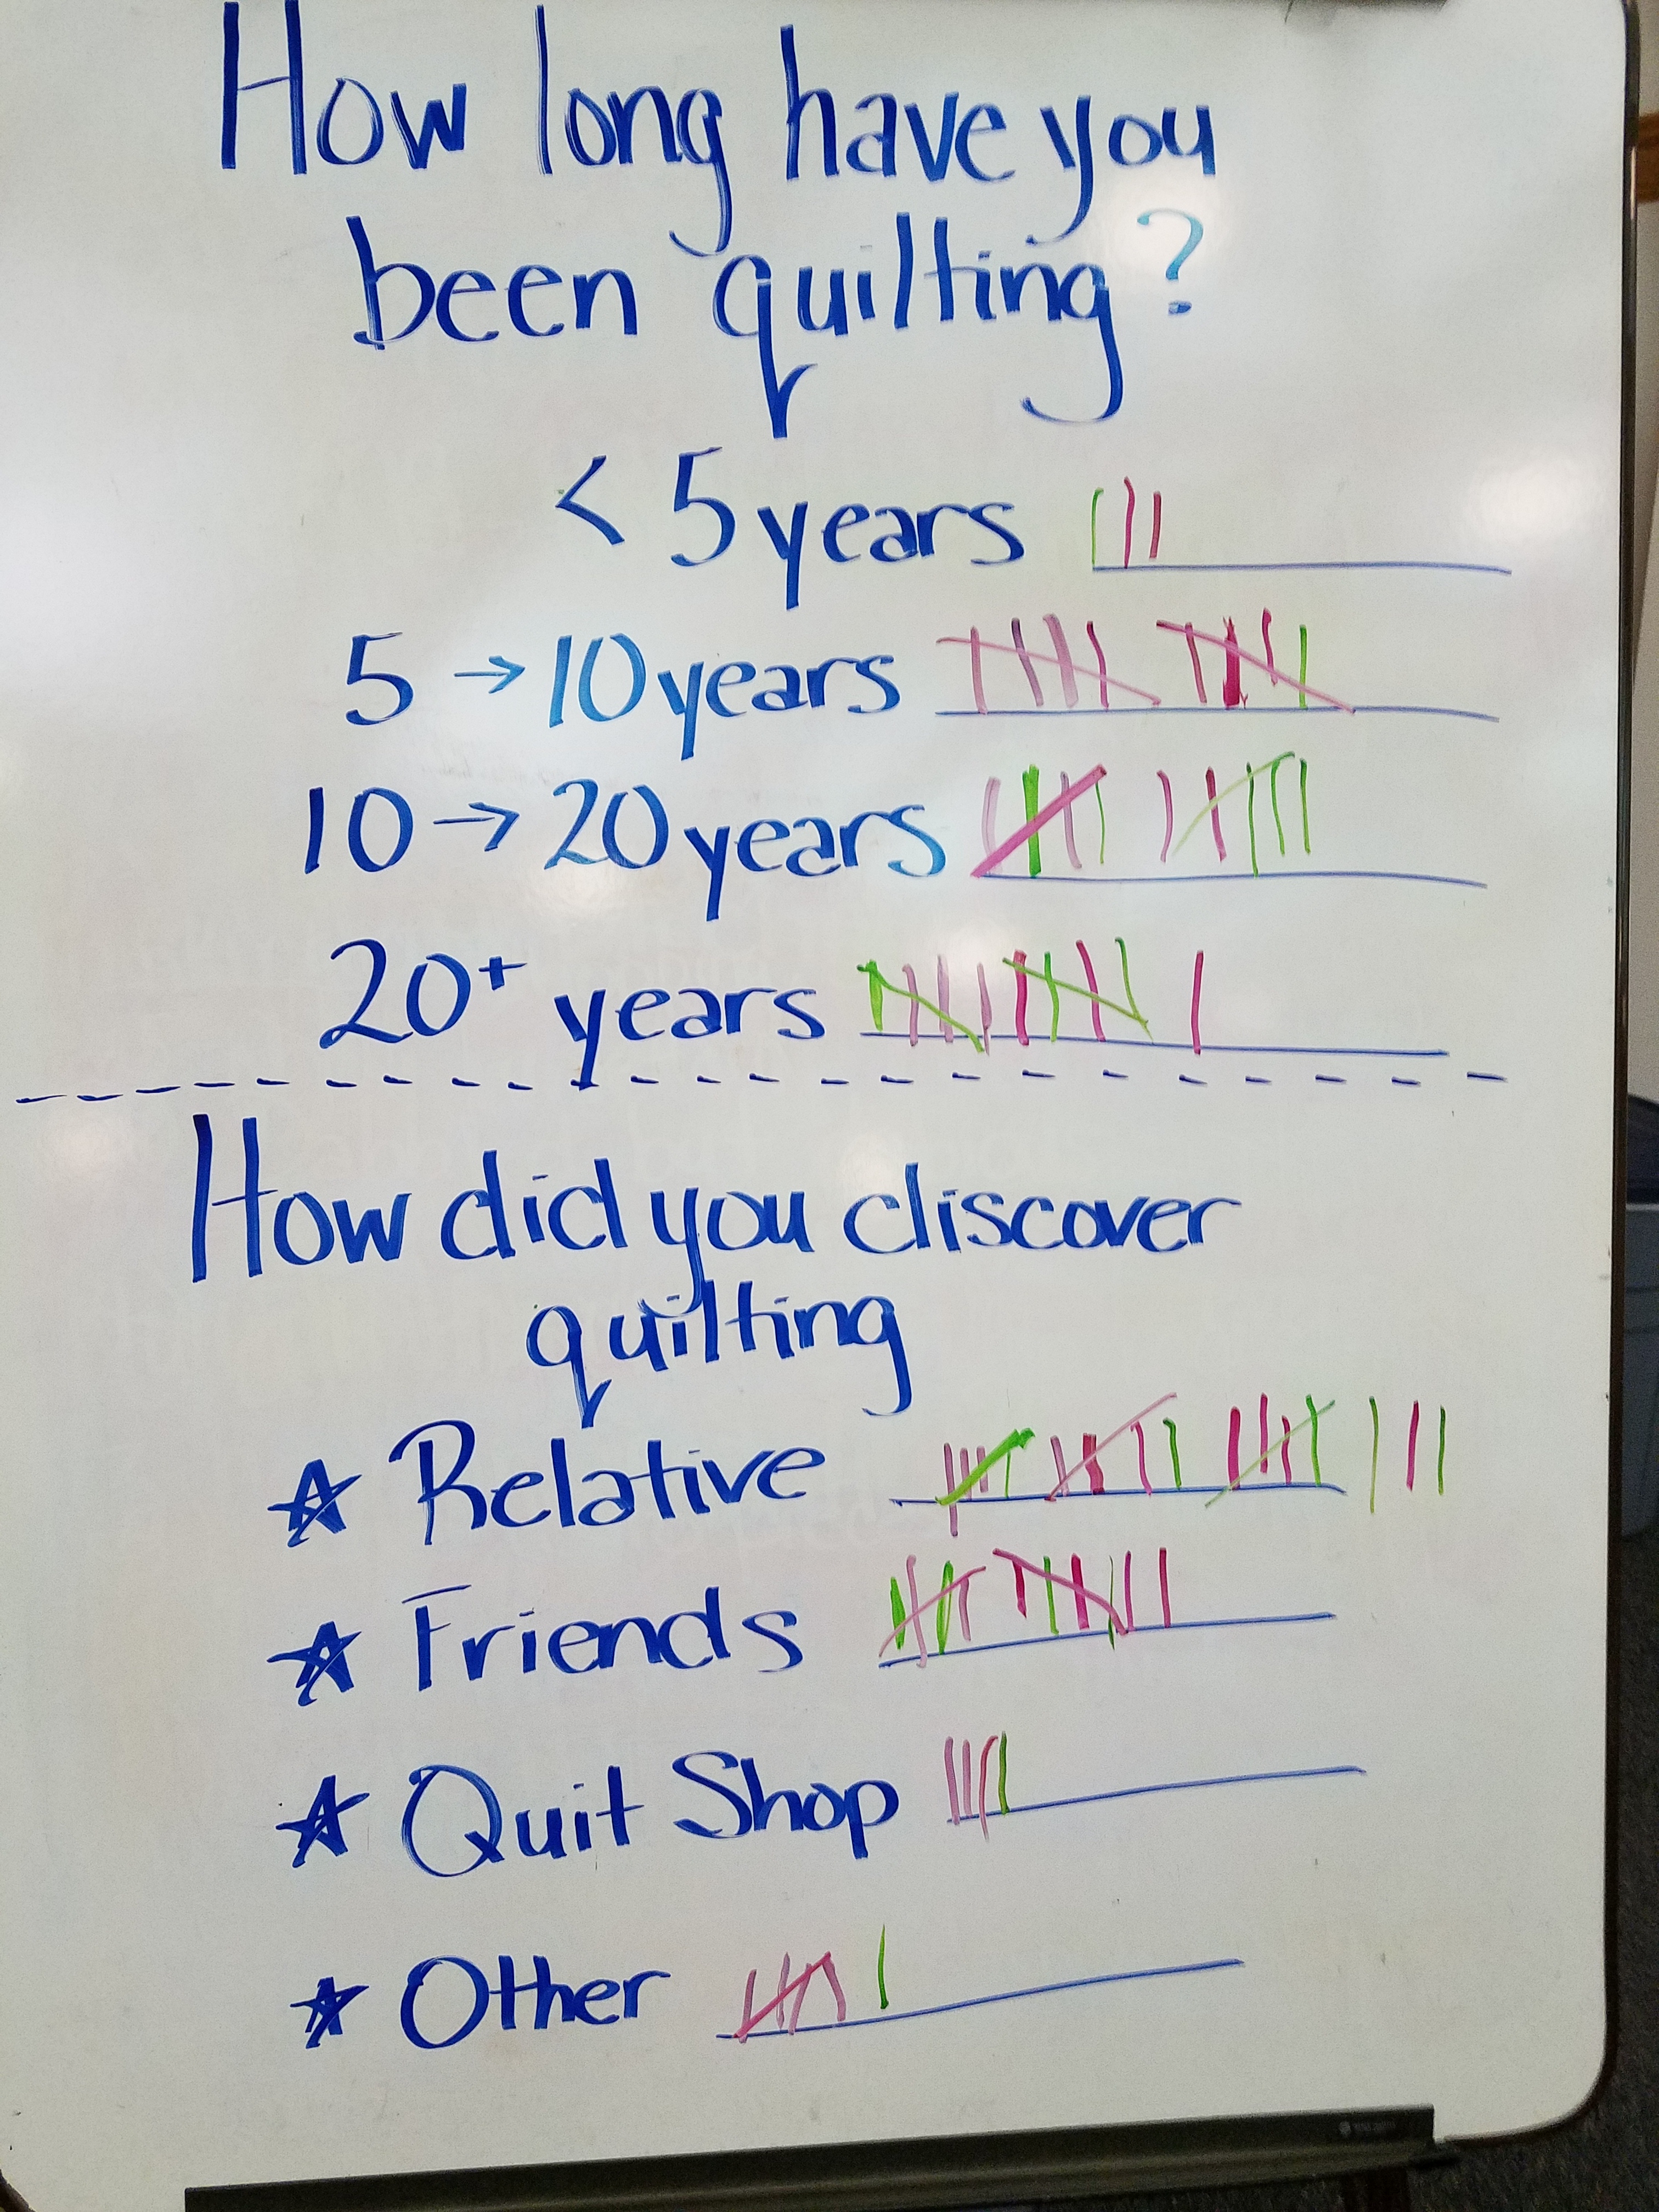 How long have you
been quilting?
< 5 years
5 → 10 years
10 → 20 years
20+ years
How did you discover
quilting
☆ Relative
☆ Friends
☆ Quit Shop
☆ Other